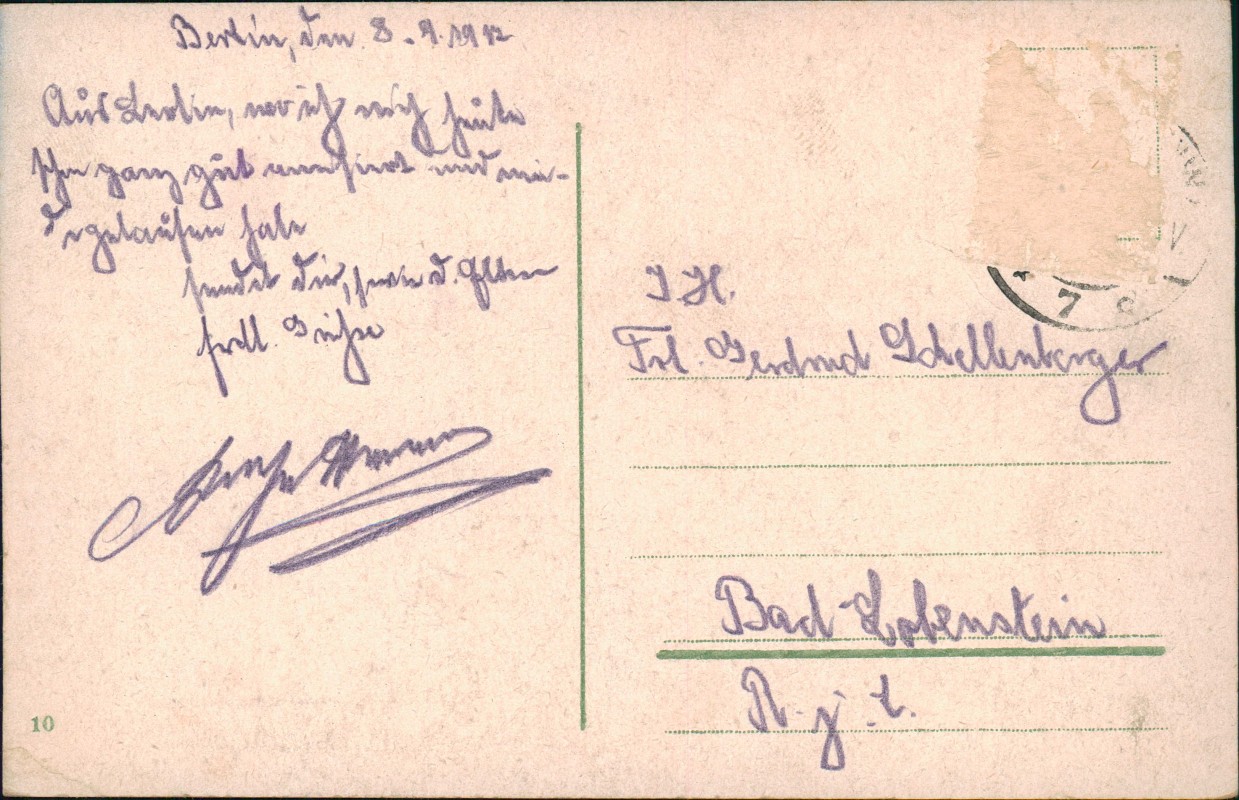 Berlin, den 8.9.1912
Aus Berlin, wo ich mich heute
schon ganz gut amüsiert und mü-
de gelaufen habe
sendet dir, sowie d. Eltern
frdl. Grüße
I H.
Frl. Gertrud Schellenberger
Bad Lobenstein
R. j. L.
10
7